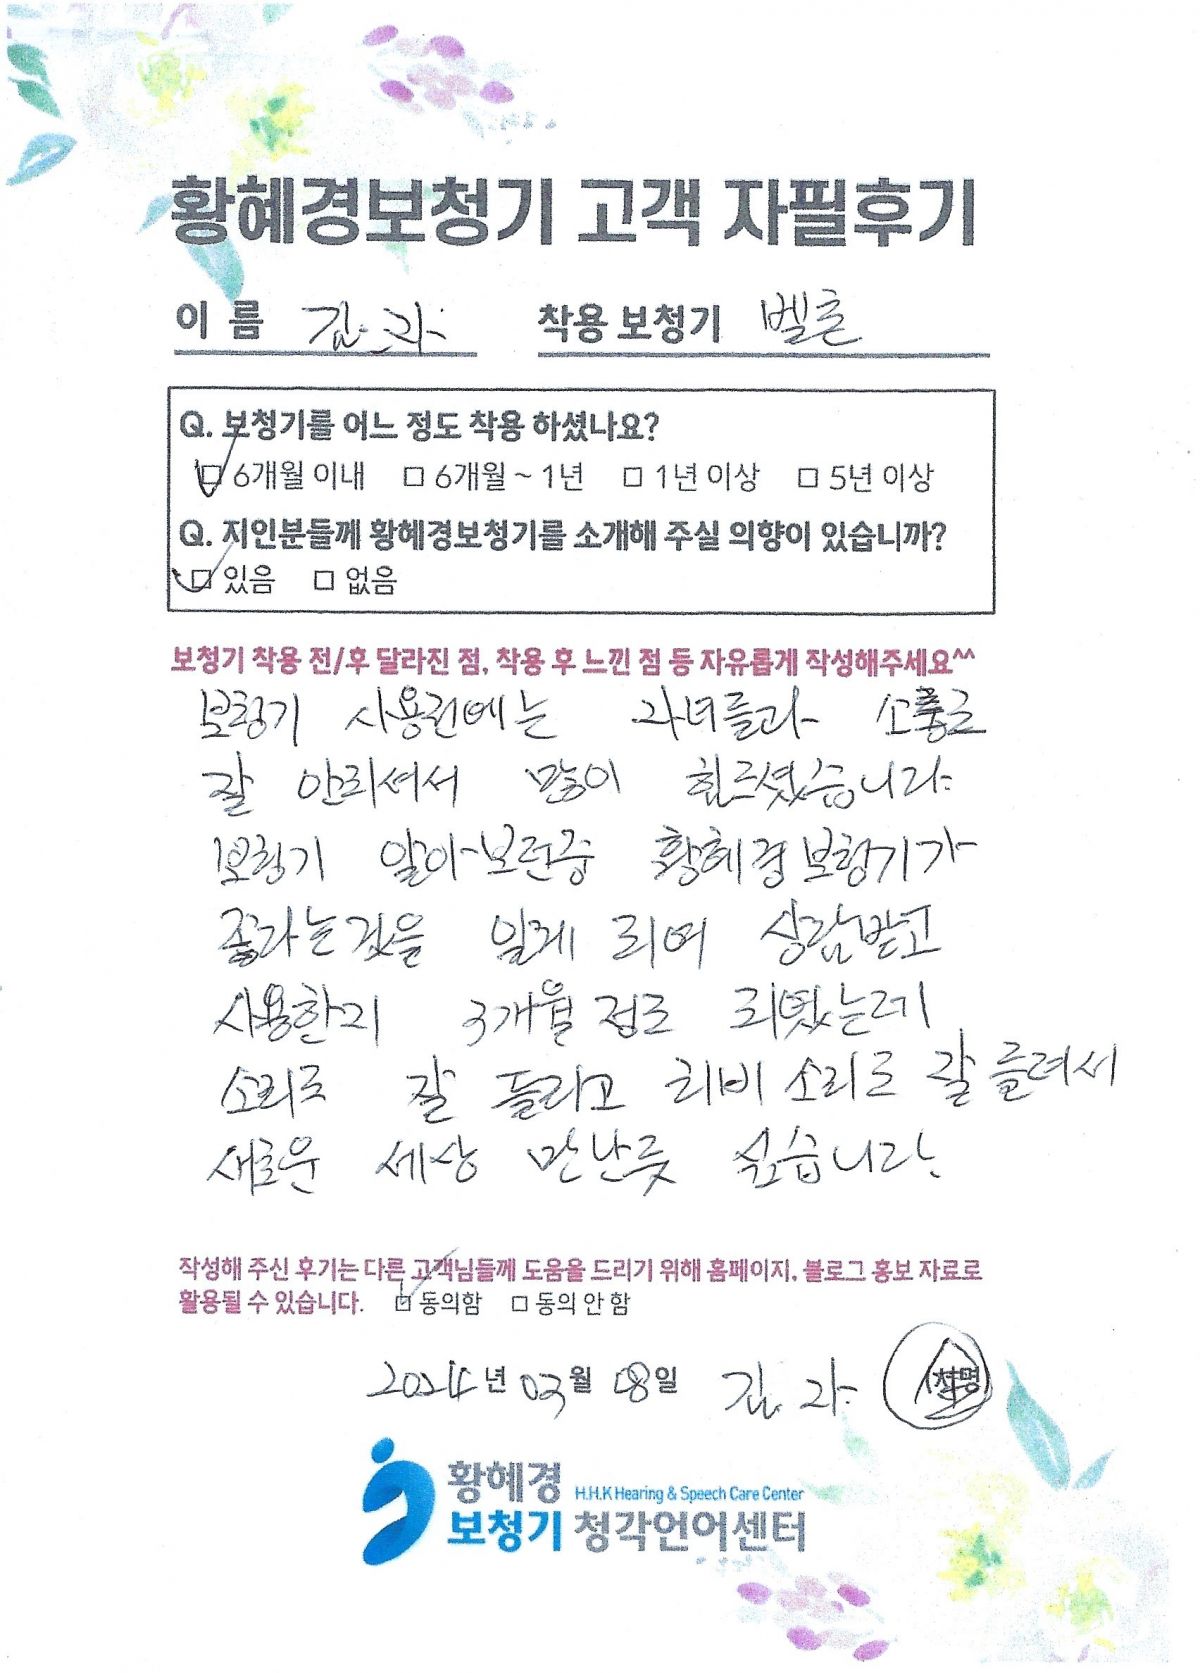 황혜경보청기 고객 자필후기
이 름 김 자 착용 보청기 벨톤
Q. 보청기를 어느 정도 착용 하셨나요?
6개월 이내 6개월 ~ 1년 1년 이상 5년 이상
Q. 지인분들께 황혜경보청기를 소개해 주실 의향이 있습니까?
있음 없음
보청기 착용 전/후 달라진 점, 착용 후 느낀 점 등 자유롭게 작성해주세요^^
보청기 사용전에는 자녀들과 소통도
잘 안되셔서 많이 힘드셨습니다.
보청기 알아보던중 황혜경보청기가
좋다는것을 알게 되어 상담받고
사용한지 3개월 정도 되었는데
소리도 잘 들리고 티비 소리도 잘 들려서
새로운 세상 만난듯 싶습니다.
작성해 주신 후기는 다른 고객님들께 도움을 드리기 위해 홈페이지, 블로그 홍보 자료로
활용될 수 있습니다. 동의함 동의 안 함
2024년 03월 08일 김 자 서명
황혜경 H.H.K Hearing & Speech Care Center
보청기 청각언어센터